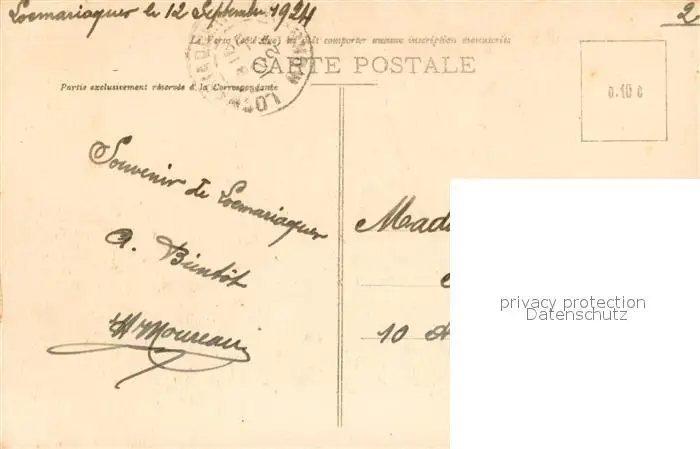 Locmariaquer le 12 Septembre 1924
2
Le Verso (côté Vue) ne doit comporter aucune inscription manuscrite
CARTE POSTALE
Partie exclusivement réservée à la Correspondance
0.10 c
Souvenir de Locmariaquer
A. Bientôt
Moureau
Mad
10
privacy protection
Datenschutz